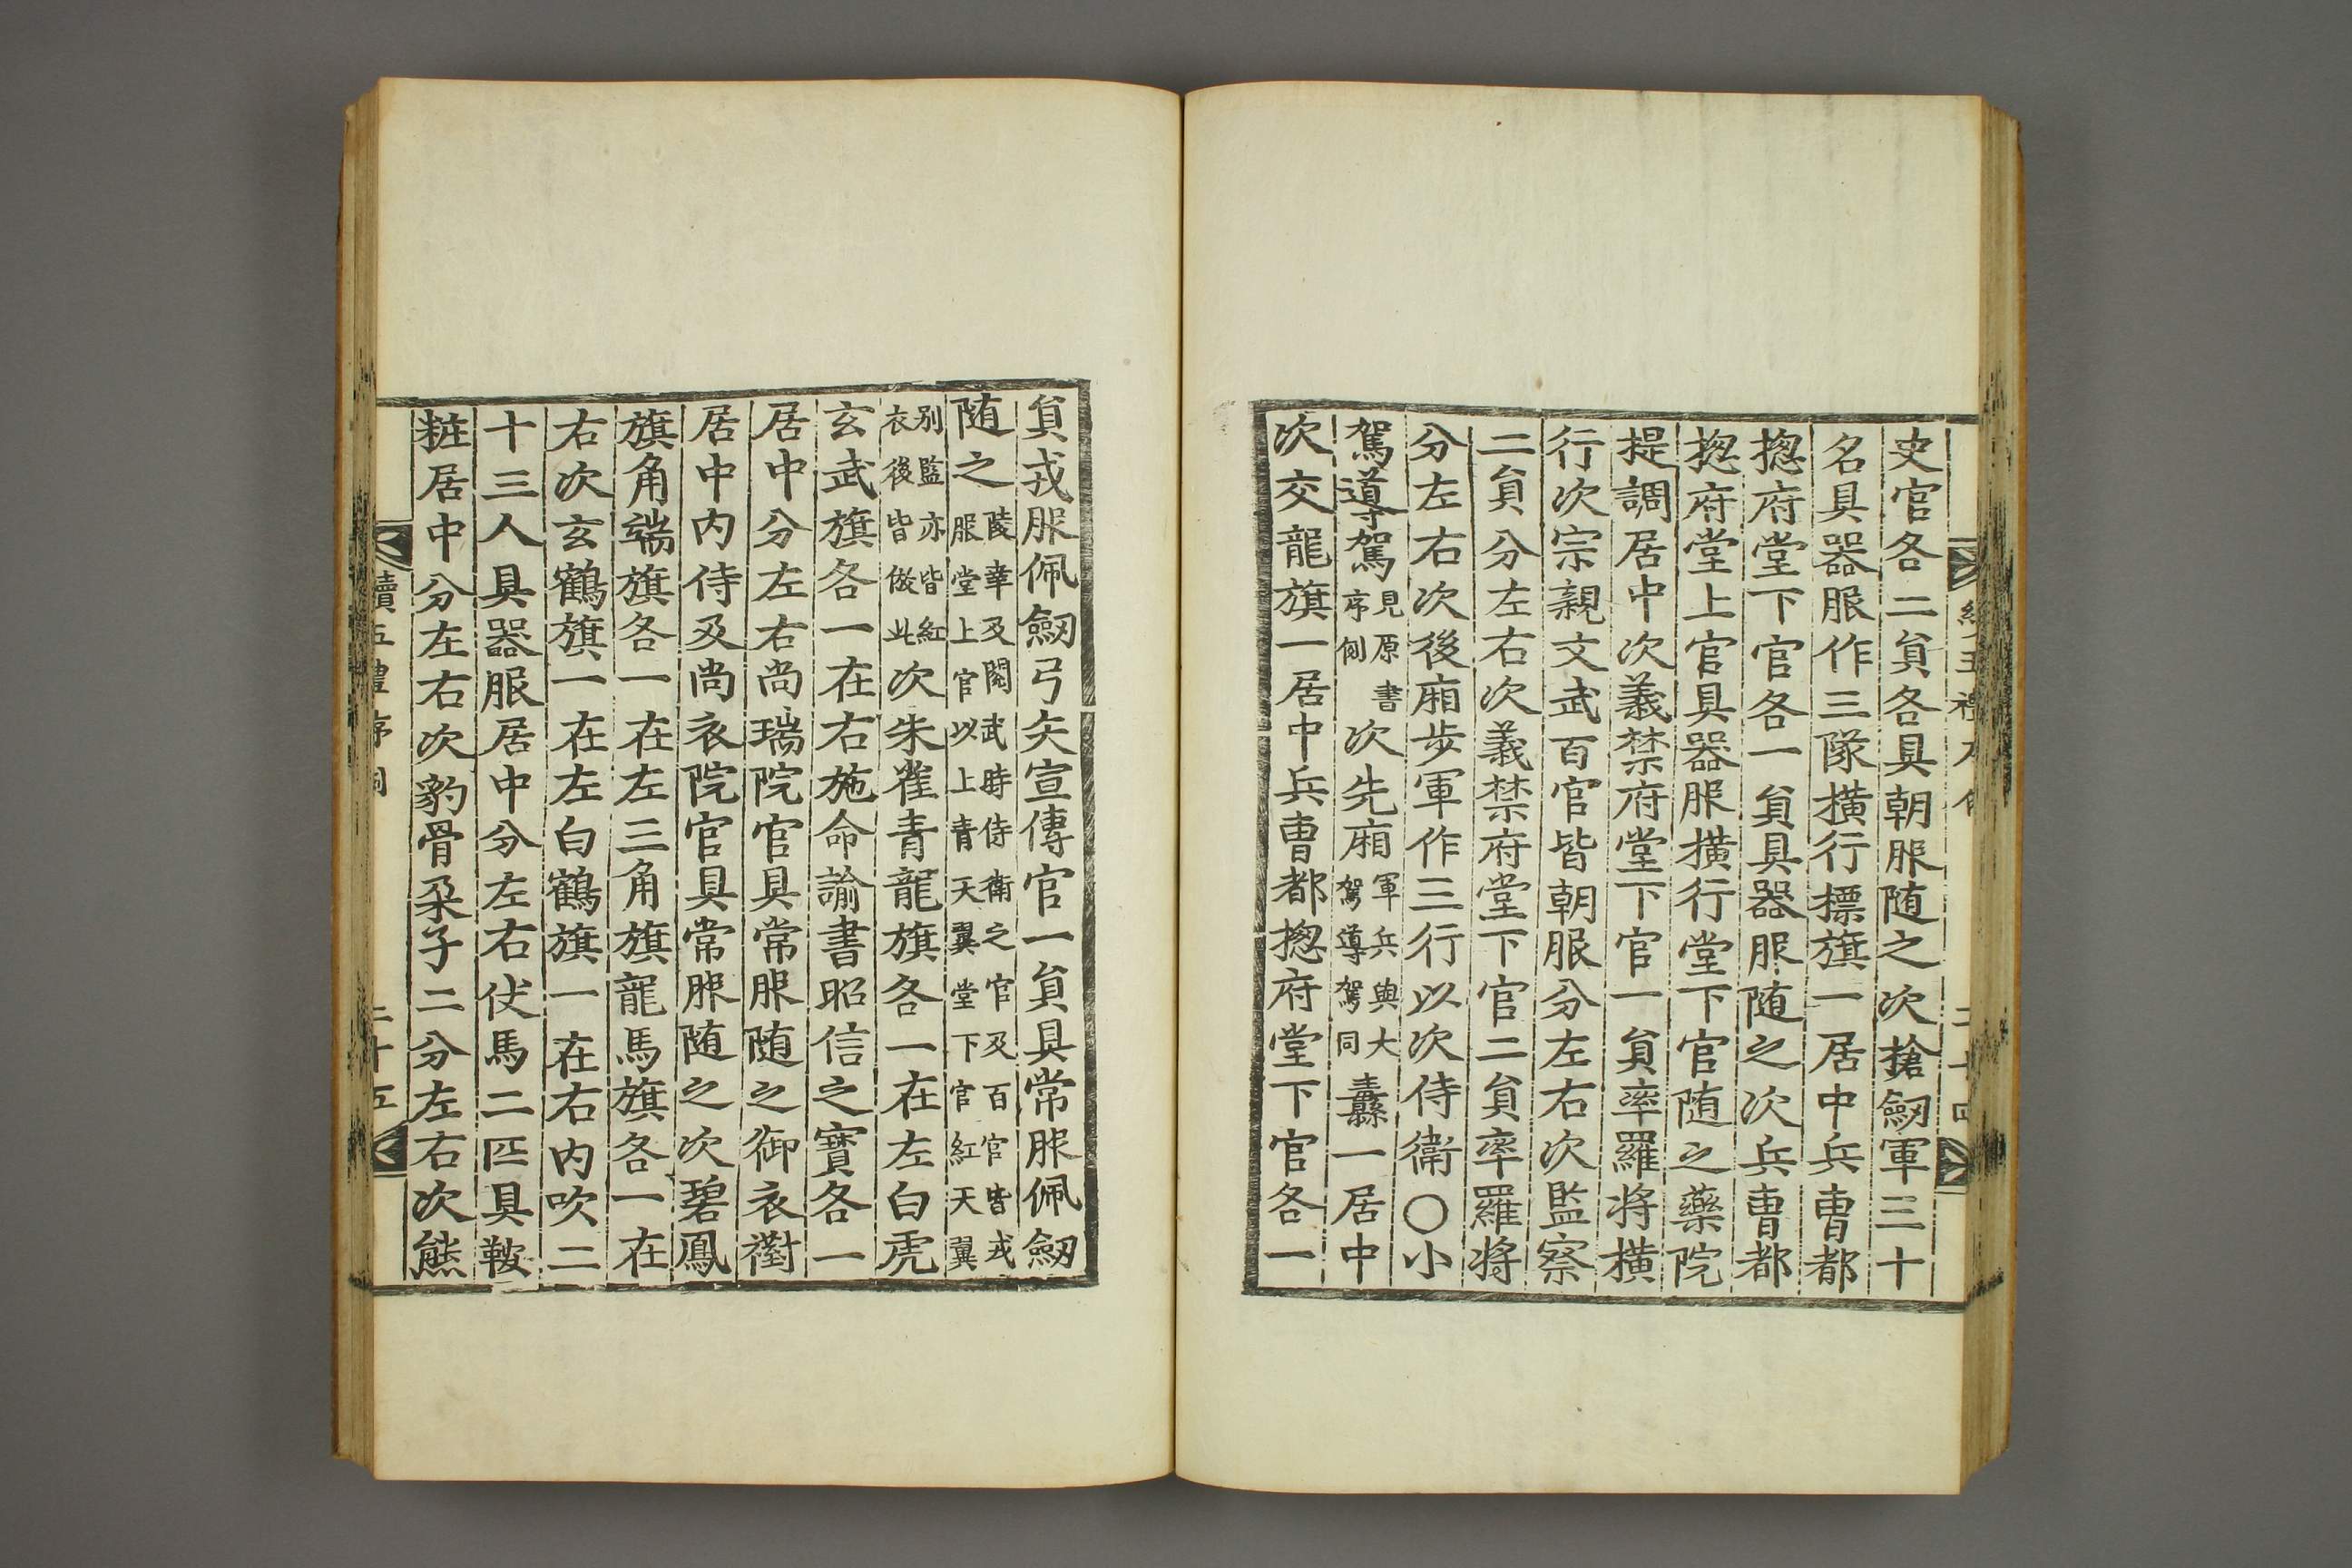 史官各二貟各具朝服随之次搶劒軍三十
名具器服作三隊橫行標旗一居中兵曺都
摠府堂下官各一貟具器服随之次兵曺都
摠府堂上官具器服橫行堂下官随之藥院
提調居中次義禁府堂下官一貟率羅將橫
行次宗親文武百官皆朝服分左右次監察
二貟分左右次義禁府堂下官二貟率羅將
分左右次後廂步軍作三行以次侍衛○小
駕導駕見原書序例次先廂軍兵與大駕導駕同纛一居中
次交龍旗一居中兵曺都摠府堂下官各一
貟戎服佩劒弓矢宣傳官一貟具常服佩劒
随之陵幸及閱武時侍衛之官及百官皆戎服堂上官以上青天翼堂下官紅天翼
别監亦皆紅衣後皆倣此次朱雀青龍旗各一在左白虎
玄武旗各一在右施命諭書昭信之寶各一
居中分左右尚瑞院官具常服随之御衣襨
居中内侍及尚衣院官具常服随之次碧鳳
旗角端旗各一在左三角旗龍馬旗各一在
右次玄鶴旗一在左白鶴旗一在右内吹二
十三人具器服居中分左右仗馬二匹具鞍
粧居中分左右次豹骨朶子二分左右次熊
續五禮序例
二十五